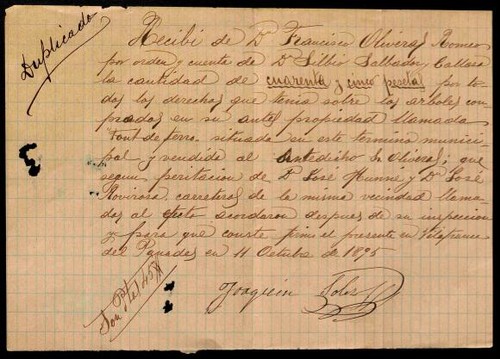 Duplicado
Recibí de Dn Francisco Oliveras Romeo
por orden y cuenta de Dn Silbio Salbador Callais
la cantidad de cuarenta y cinco pesetas por to-
dos los derechos que tenia sobre los arboles com-
prados en su antes propiedad llamada
Font de ferro situada en este termino munici-
pal y vendido al antedicho Sr Olivera; que
segun peritacion de Dn José Munné y Dn José
Rovirosa, carreteros de la misma vecindad llama-
dos al efecto acordaron despues de su inspeccion
y para que conste firmo el presente en Vilafranca
del Panadés en 11 Octubre de 1895
Joaquin Soler
Son Ptas 45